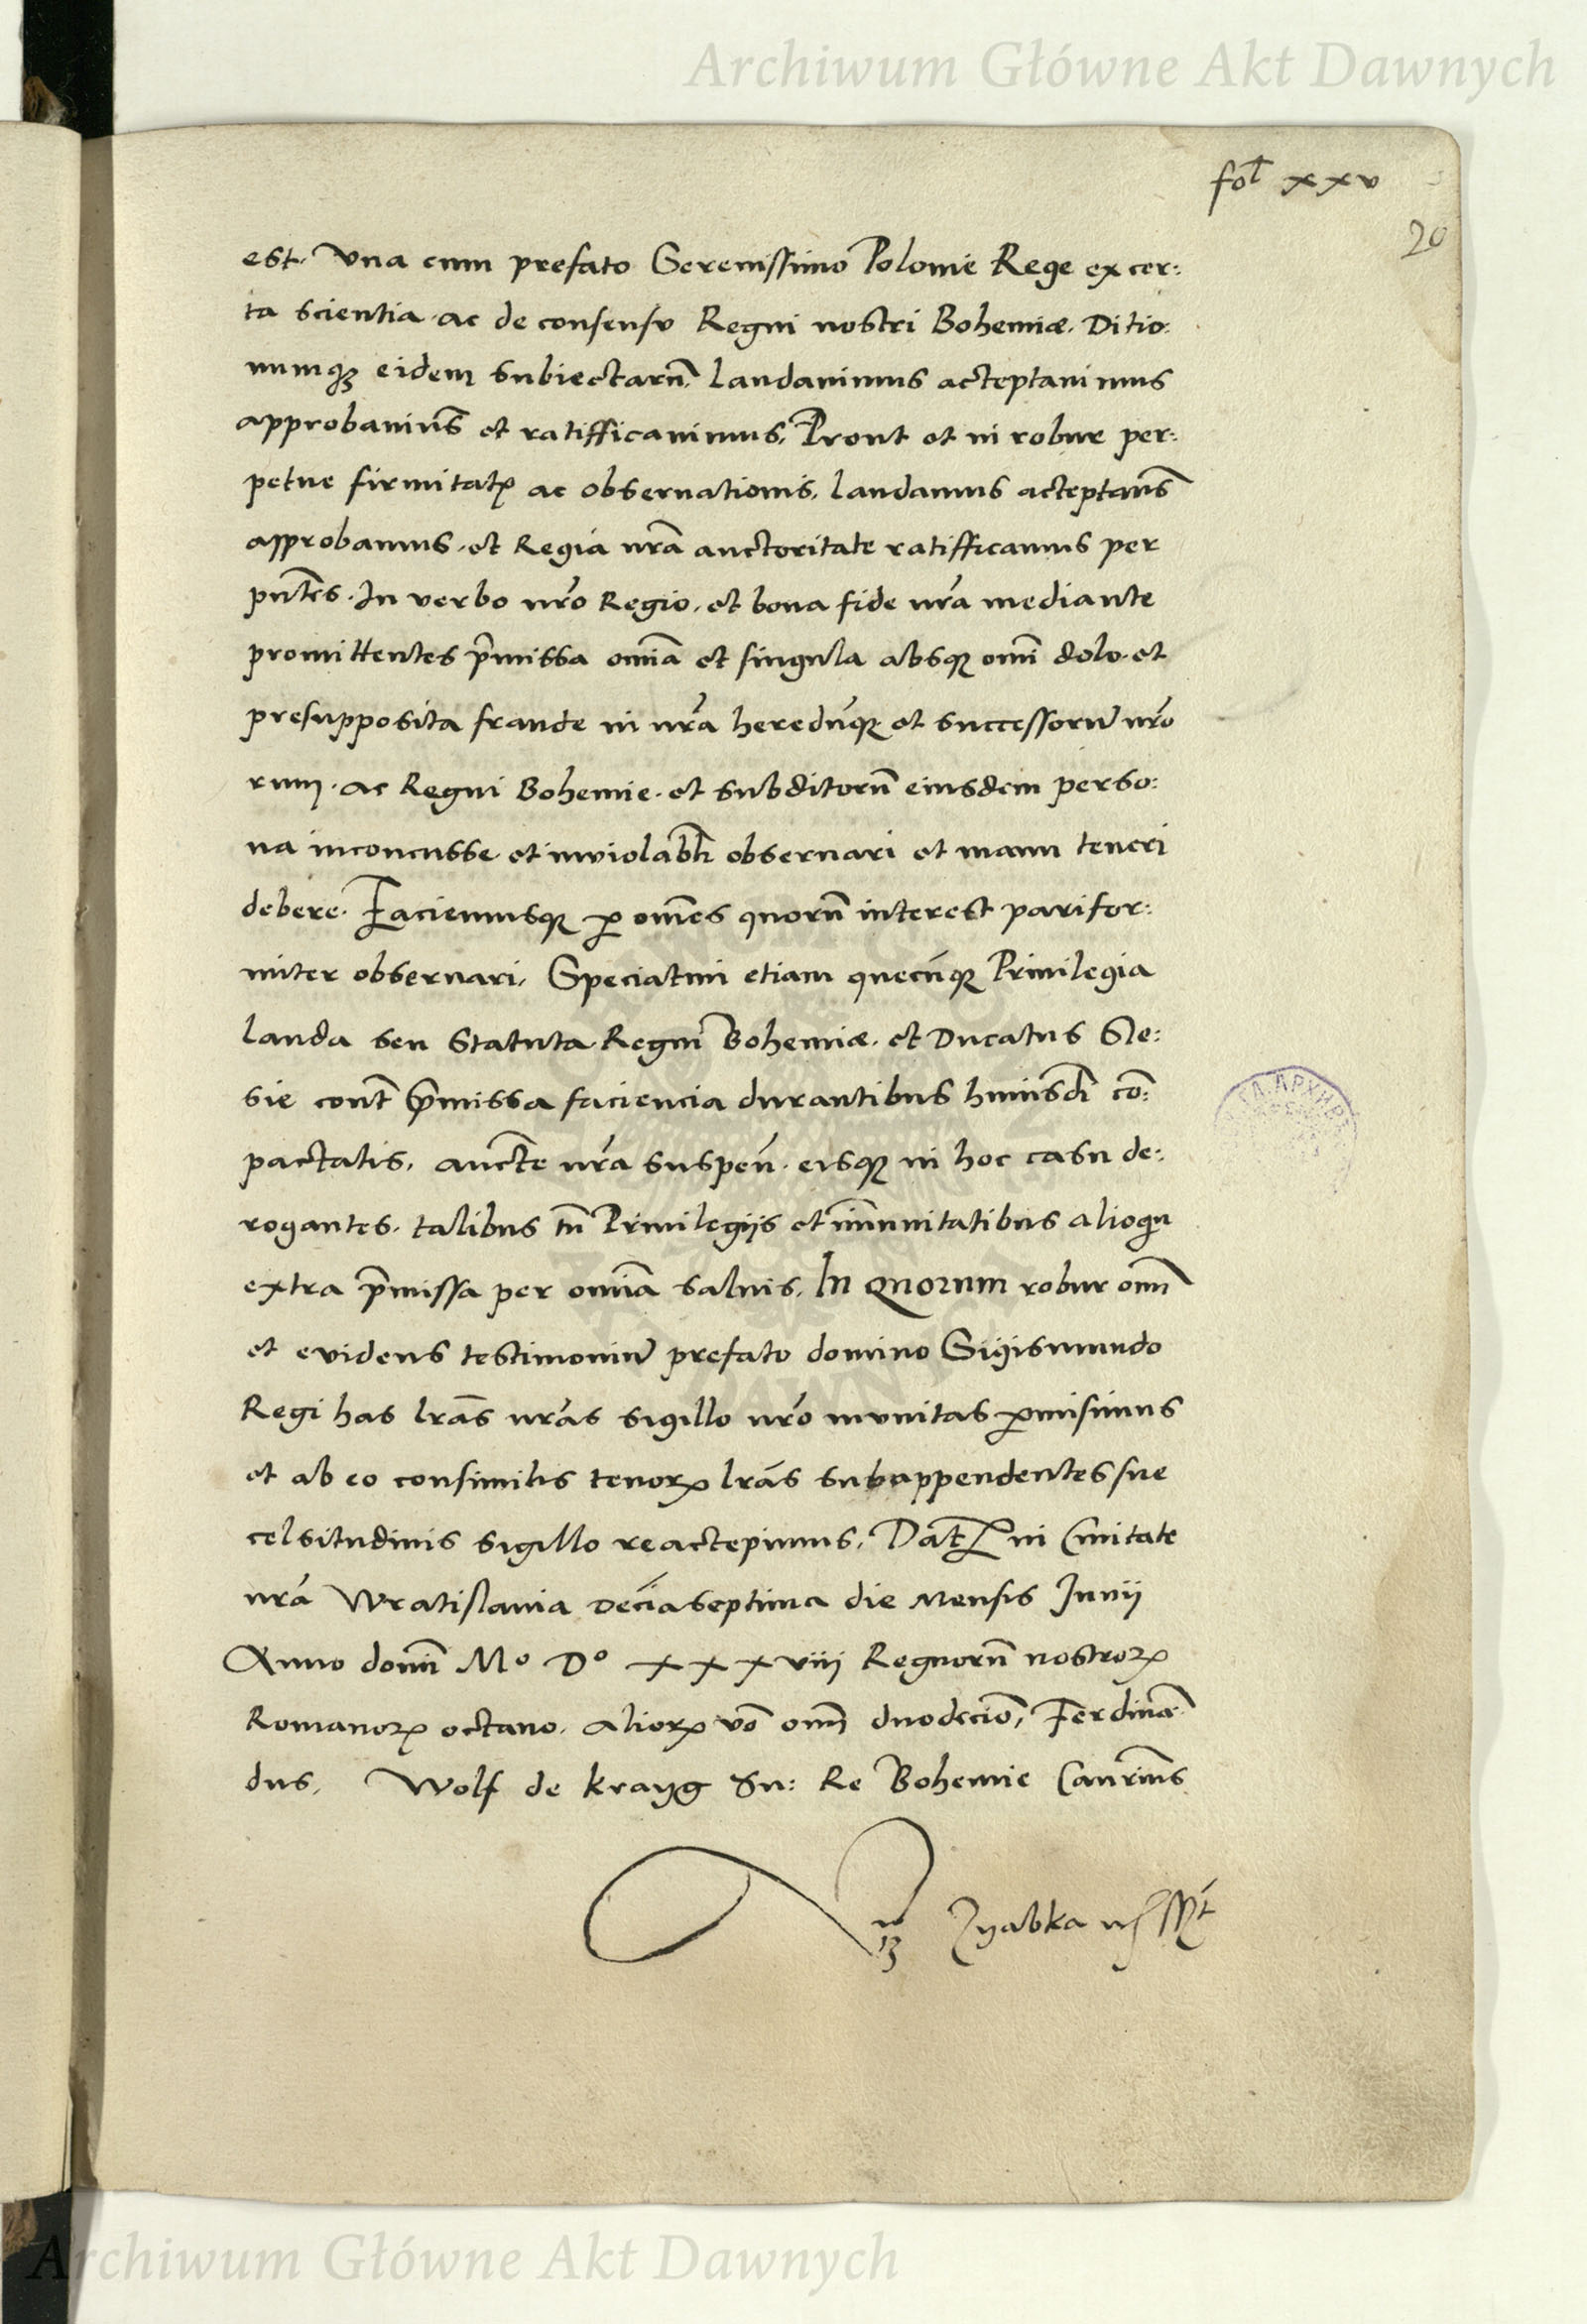 Archiwum Główne Akt Dawnych
fol xxv
20
est. Vna cum prefato Serenissimo Polonie Rege ex cer:
ta scientia. ac de consensv Regni nostri Bohemiæ. Ditio:
numqȝ eidem subiectarū. laudauimus acceptauimus
approbauim̄s et ratifficauimus. Prout et in robur per:
petue firmitatꝭ ac obseruationis. laudamus acceptam̄s
approbamus. et Regia nr̄a auctoritate ratifficamus per
pn̄tes. In verbo nr̄o Regio. et bona fide nr̄a mediante
promittentes p̄missa om̄ia et singula absqꝫ om̄i dolo. et
presupposita fraude in nr̄a heredūqꝫ et successorū nr̄o
rum. ac Regni Bohemie. et subditorū eiusdem perso:
na inconcusse et inviolabl̄r obseruari et manu teneri
debere. Faciemusqꝫ ꝑ om̄es quorū interest parifor:
miter obseruari. Speciatim etiam quecūqꝫ Priuilegia
lauda seu Statuta Regni Bohemiæ. et Ducatus Sle:
sie cont̄ p̄missa faciencia durantibus huiusd̄i cō:
pactatis. aucte nr̄a suspen̄. eisqꝫ in hoc casu de:
rogantes. talibus tn̄ Priuilegijs et im̄unitatibus alioqn
extra p̄missa per om̄ia saluis. In Quorum robur om̄
et evidens testimoniū prefato domino Sigismundo
Regi has lr̄as nr̄as sigillo nr̄o mvnitas ꝑmisimus
et ab eo consimilis tenorꝭ lr̄as subappendentes sue
celsitudinis sigillo reaccepimus. Dat̄ in Ciuitate
nr̄a Wratislauia decīaseptima die Mensis Junij
Anno domī Mº Dº xxxviij Regnorū nostroꝝ
Romanoꝝ octauo. alioꝝ vō om̄ duodecīo. Ferdinā
dus. Wolf de krayg Su: Re Bohemie Canr̄ius
Zyabka
Archiwum Główne Akt Dawnych